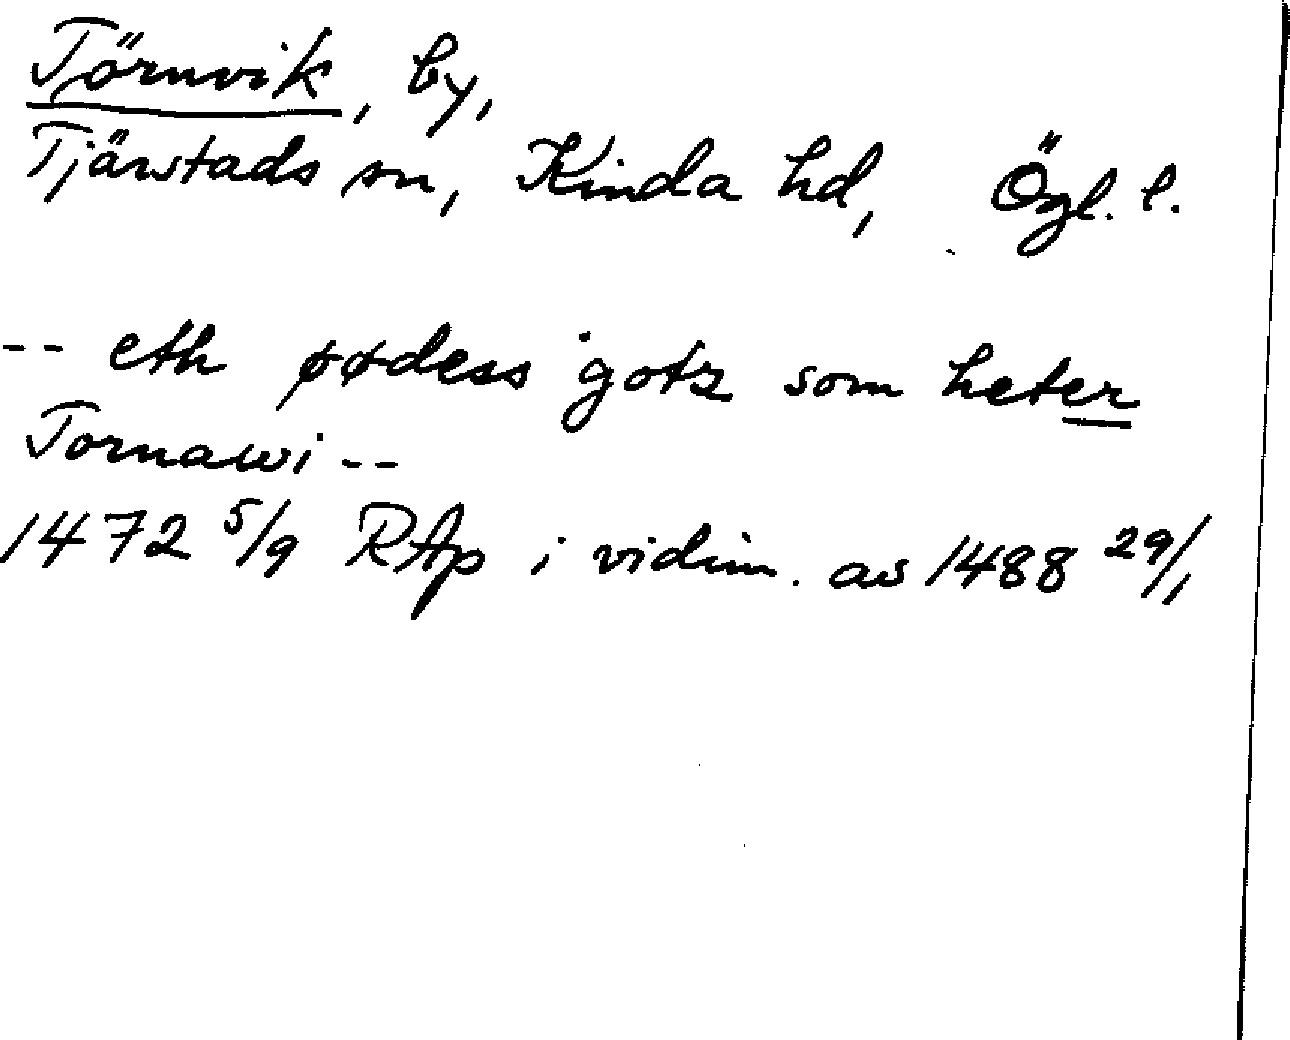 Törnvik, by,
Tjärstads sn, Kinda hd, Ögl. l.
-- eth øødess gotz som heter
Tornawi --
1472 5/9 RAp i vidim. av 1488 29/1